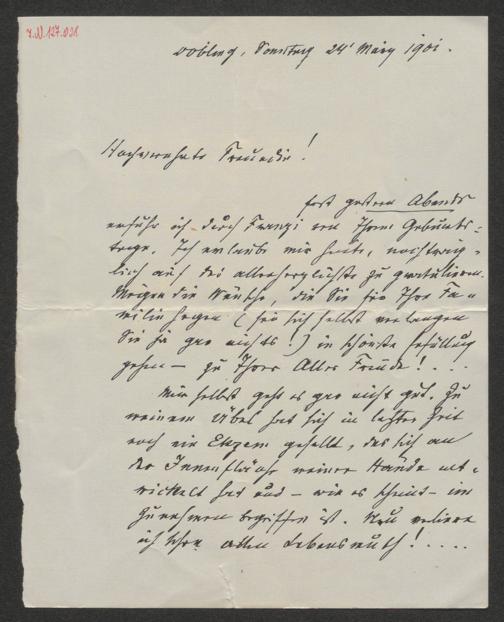 I.N. 127.021
Döbling, Sonntag 24t März 1901.
Hochverehrte Freundin!
Erst gestern Abends
erfuhr ich durch Franzi von Ihrem Geburts-
tage. Ich erlaube mir heute, nachträg-
lich auf das allerherzlichste zu gratulieren.
Mögen die Wünsche, die Sie für Ihre Fa-
milie hegen (für sich selbst verlangen
Sie ja gar nichts!) in schönste Erfüllung
gehen – zu Ihrer Aller Freude! . . .
Mir selbst geht es gar nicht gut. Zu
meinem Übel hat sich in letzter Zeit
noch ein Ekzem gesellt, das sich an
der Innenfläche meiner Hände ent-
wickelt hat und – wie es scheint – im
Zunehmen begriffen ist. Nun verliere
ich schon allen Lebensmuth! . . . .